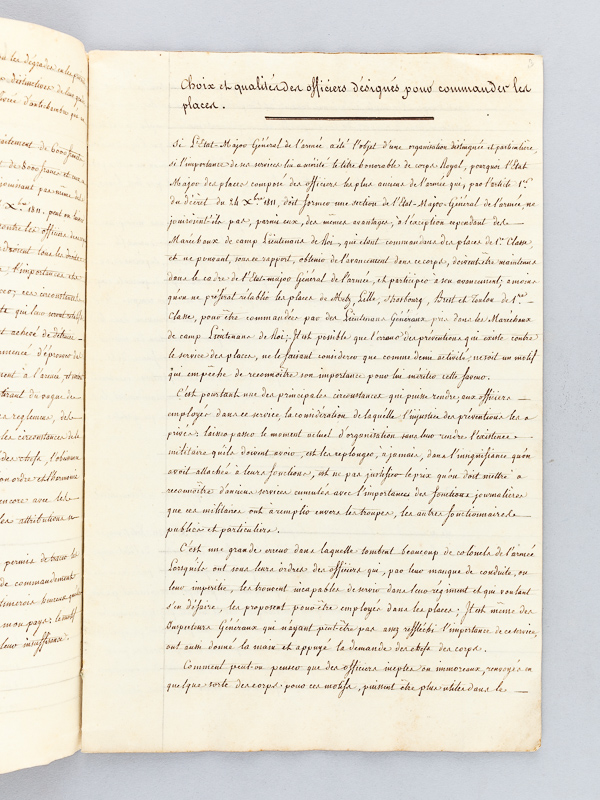 ou les dégrades
distinctions de leur
traitement de 6000 francs
de 8000 francs et
X.bre 1811.
contre les officiers
tous les
l'importance
ces circonstances
qui leur
et achevé de détruire
d'épreuve de
à l'armée
les règlements, des
les circonstances
des chefs, l'obéissance
ou ordre et l'harmonie
encore avec les
les attributions
permis de
de commandement
heureux
mon pays; le motif
leur insuffisance.
3
Choix et qualités des officiers désignés pour commander les
places.
Si L'Etat-Major Général de l'armée a été l'objet d'une organisation distinguée et particulière,
si l'importance de ses services lui a mérité le titre honorable de corps Royal, pourquoi l'Etat
Major des places composé des officiers les plus anciens de l'armée, qui, par l'article 1.er
du décret du 24 X.bre 1811, doit former une section de l'Etat-Major Général de l'armée, ne
jouiroient-ils pas, parmi eux, des mêmes avantages, à l'exception cependant des
Maréchaux de camp Lieutenans de Roi, qui étant commandans des places de 1.re Classe,
et ne pouvant, sous ce rapport, obtenir de l'avancement dans ce corps, doivent être maintenus
dans le cadre de l'Etat-major Général de l'armée, et participer à son avancement; à moins
qu'on ne préférat rétablir les places de Metz, Lille, Strasbourg, Brest et Toulon de 1.re
Classe, pour être commandées par des Lieutenans Généraux, pris dans les Maréchaux
de camp Lieutenans de Roi; Il est possible que l'erreur des préventions qui existe contre
le service des places, ne le faisant considérer que comme demie activité, ne soit un motif
qui empêche de reconnoître son importance pour lui mériter cette faveur.
C'est pourtant une des principales circonstances qui puisse rendre, aux officiers
employés dans ce service, la considération de laquelle l'injustice des préventions les a
privés: laisser passer le moment actuel d'organisation sans leur rendre l'existence
militaire qu'ils doivent avoir, est les replonger, à jamais, dans l'insignifiance qu'on
avoit attachée à leurs fonctions, est ne pas justifier le prix qu'on doit mettre à
reconnoître d'anciens services cumulés avec l'importance des fonctions journalières
que ces militaires ont à remplir envers les troupes, les autres fonctionnaires
publics et particuliers.
C'est une grande erreur dans laquelle tombent beaucoup de colonels de l'armée
Lorsqu'ils ont sous leurs ordres des officiers qui, par leur manque de conduite, ou
leur impéritie, les trouvent incapables de servir dans leur régiment et qui voulant
s'en défaire, les proposent pour être employés dans les places; Il est même des
Inspecteurs Généraux qui n'ayant peut-être pas assez réfléchi l'importance de ce service,
ont aussi donné la main et appuyé la demande des chefs des corps.
Comment peut-on penser que des officiers ineptes ou immoraux, renvoyés en
quelque sorte des corps pour ces motifs, puissent être plus utiles dans le